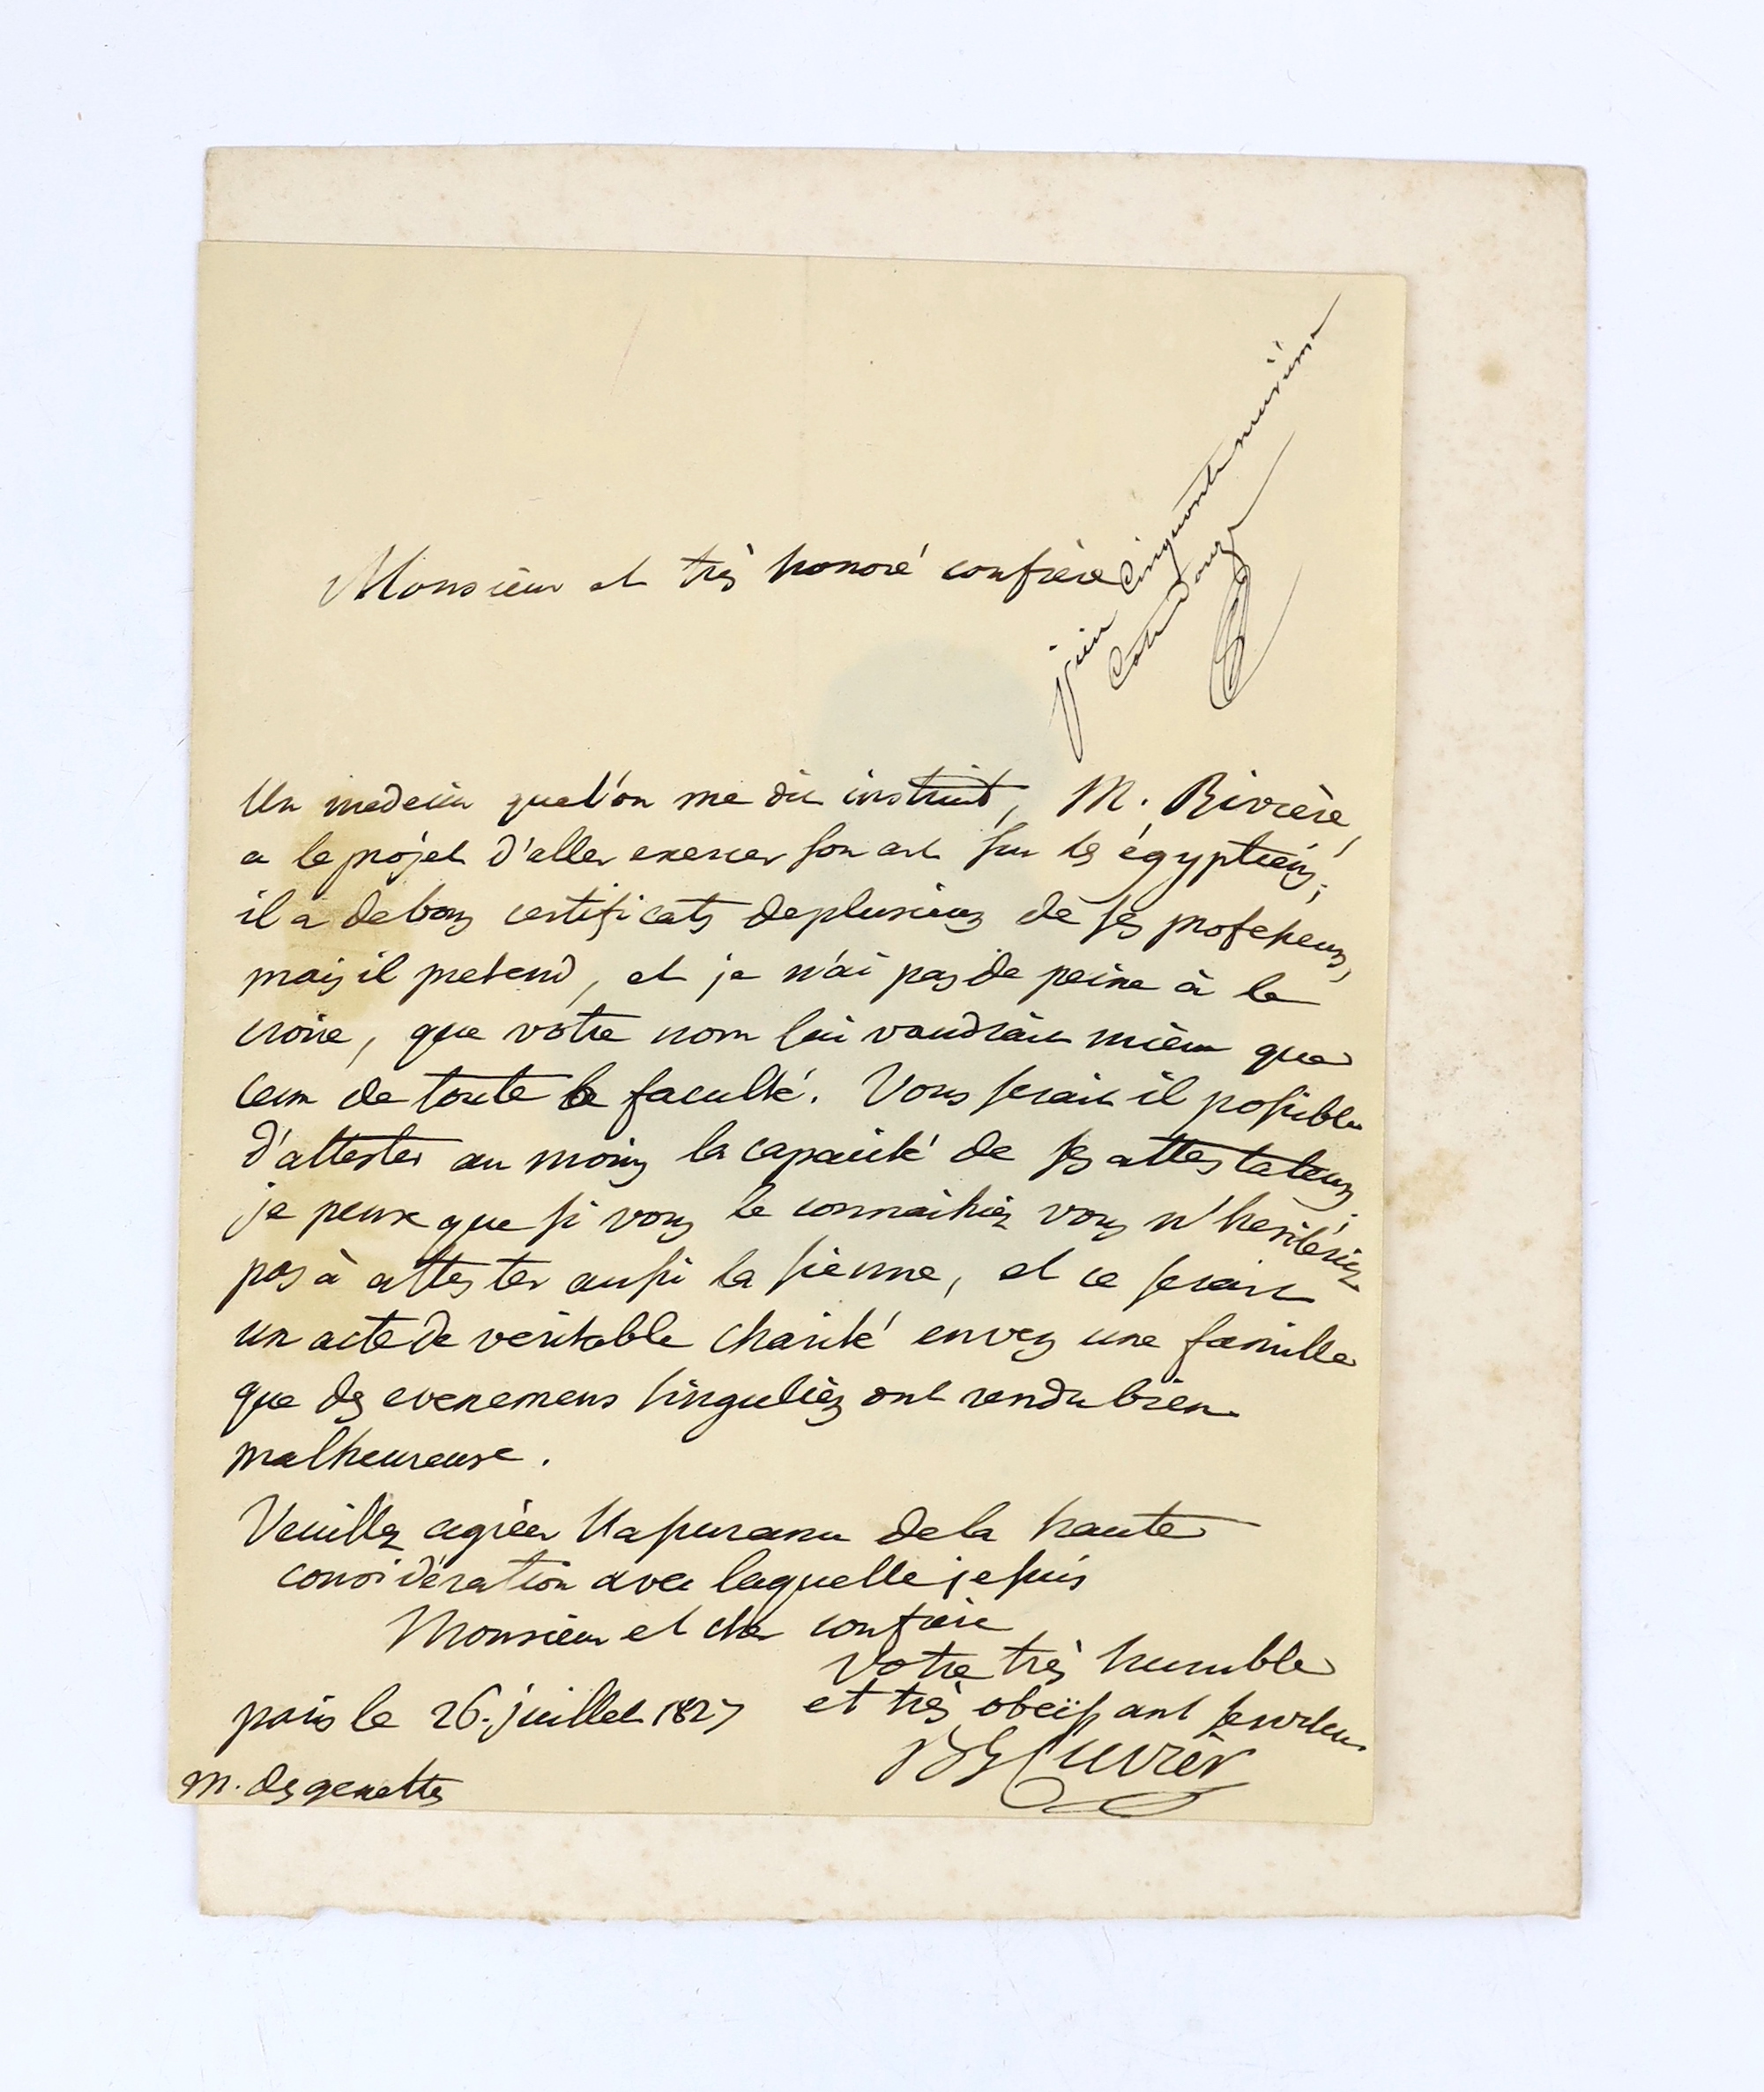 Monsieur et très honoré confrère
pièce cinquante neuvième
Cote Douze
Un medecin quel'on me dit instruit, M. Rivière,
a le projet d'aller exercer son art sur les égyptiens;
il a de bons certificats de plusieurs de ses professeurs,
mais il pretend, et je n'ai pas de peine à le
croire, que votre nom lui vaudrait mieux que
ceux de toute la faculté. Vous serait il possible
d'attester au moins la capacité de ses attestateurs;
je pense que si vous le connaissiez vous n'hesiteriez
pas à attester aussi la sienne, et ce serait
un acte de veritable charité envers une famille
que des evenemens singuliers ont rendu bien
malheureuse.
Veuillez agréer l'assurance de la haute
considération avec laquelle je suis
Monsieur et cher confrère
Votre très humble
et très obeïssant serviteur
paris le 26. juillet 1827
Bn G Cuvier
M. desgenettes